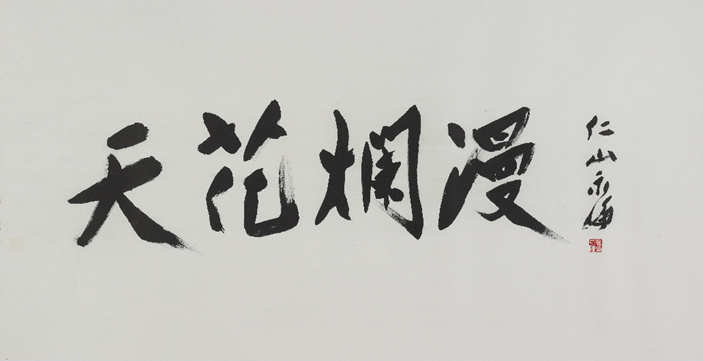 天花爛漫
仁山